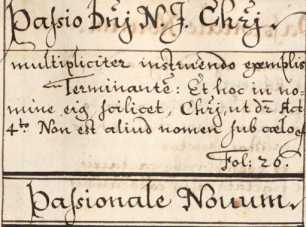 Passio Dñj N. J. Chrj.
multipliciter instruendo exemplis
Terminante: Et hoc in no-
mine eig scilicet, Chrj, ut dr̃ Act
4to Non est aliud nomen sub cæloe
Fol: 26.
Passionale Novum.